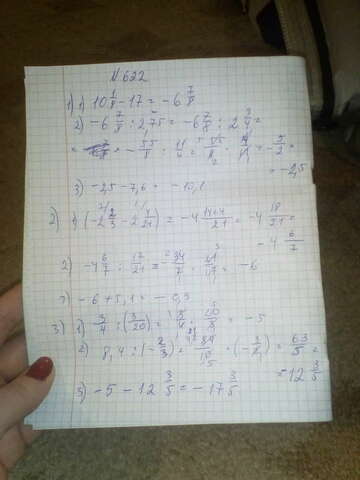 N 622
1) 1) 10 1/8 - 17 = - 6 7/8
2) - 6 7/8 : 2,75 = - 6 7/8 : 2 3/4 =
= - 55/8 : 11/4 = 55/8 · 4/11 = - 5/2 =
= - 2,5
3) - 2,5 - 7,6 = - 10,1
2) 1) (- 2 2/3 - 2 4/21) = - 4 14+4/21 = - 4 18/21 =
- 4 6/7
2) - 4 6/7 : 17/21 = - 34/7 · 21/17 = - 6
3) - 6 + 5,1 = - 0,9
3) 1) 3/4 : (3/20) = 3/4 · 20/3 = - 5
2) 8,4 : (- 2/3) = 84/10 · (- 3/2) = 63/5 =
= 12 3/5
3) - 5 - 12 3/5 = - 17 3/5